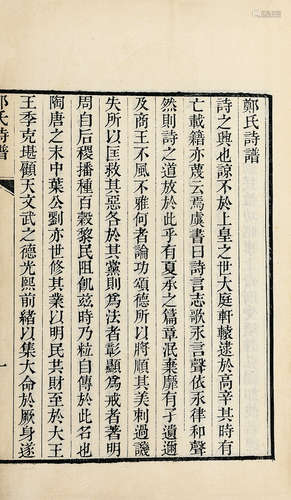 鄭氏詩譜
詩之興也諒不於上皇之世大庭軒轅逮於高辛其時有
亡載籍亦蔑云焉虞書曰詩言志歌永言聲依永律和聲
然則詩之道放於此乎有夏承之篇章泯棄靡有孑遺邇
及商王不風不雅何者論功頌德所以將順其美刺過譏
失所以匡救其惡各於其黨則為法者彰顯為戒者著明
周自后稷播種百穀黎民阻飢茲時乃粒自傳於此名也
陶唐之末中葉公劉亦世修其業以明民共財至於大王
王季克堪顧天文武之德光熙前緒以集大命於厥身遂
鄭氏詩譜
一